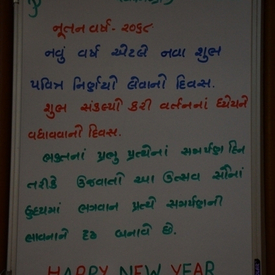 નૂતન વર્ષ - ૨૦૬૮
નવું વર્ષ એટલે નવા શુભ
પવિત્ર નિર્ણયો લેવાનો દિવસ.
શુભ સંકલ્પો કરી વર્તનનાં ધ્યેયને
વધાવવાનો દિવસ.
ભક્તનાં પ્રભુ પ્રત્યેનાં સમર્પણ દિન
તરીકે ઉજવાતો આ ઉત્સવ સૌનાં
હૃદયમાં ભગવાન પ્રત્યે સમર્પણની
ભાવનાને દ્રઢ બનાવે છે.
HAPPY NEW YEAR